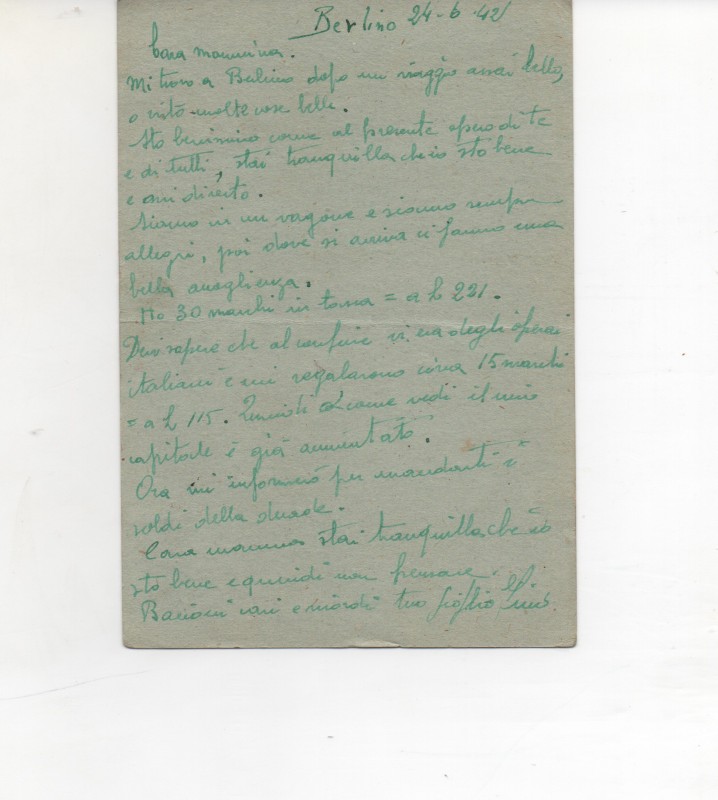 Berlino 24-6-42
Cara mammina.
Mi trovo a Berlino dopo un viaggio assai bello,
o visto molte cose belle.
Sto benissimo come al presente spero di te
e di tutti, stai tranquilla che io sto bene
e mi diverto.
Siamo in un vagone e siamo sempre
allegri, poi dove si arriva ci fanno una
bella accoglienza.
Ho 30 marchi in tasca = a £ 231.
Devi sapere che al confine vi era degli operai
italiani e mi regalarono circa 15 marchi
= a £ 115. Quindi come vedi il mio
capitale è già aumentato.
Ora mi informerò per mandarti i
soldi della
Cara mamma stai tranquilla che io
sto bene e quindi non pensare.
Bacioni cari e ricordi tuo figlio